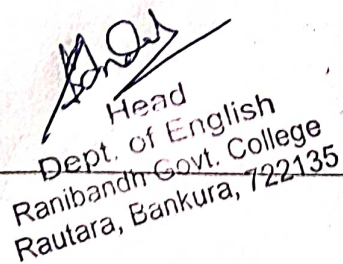 Head
Dept. of English
Ranibandh Govt. College
Rautara, Bankura, 722135